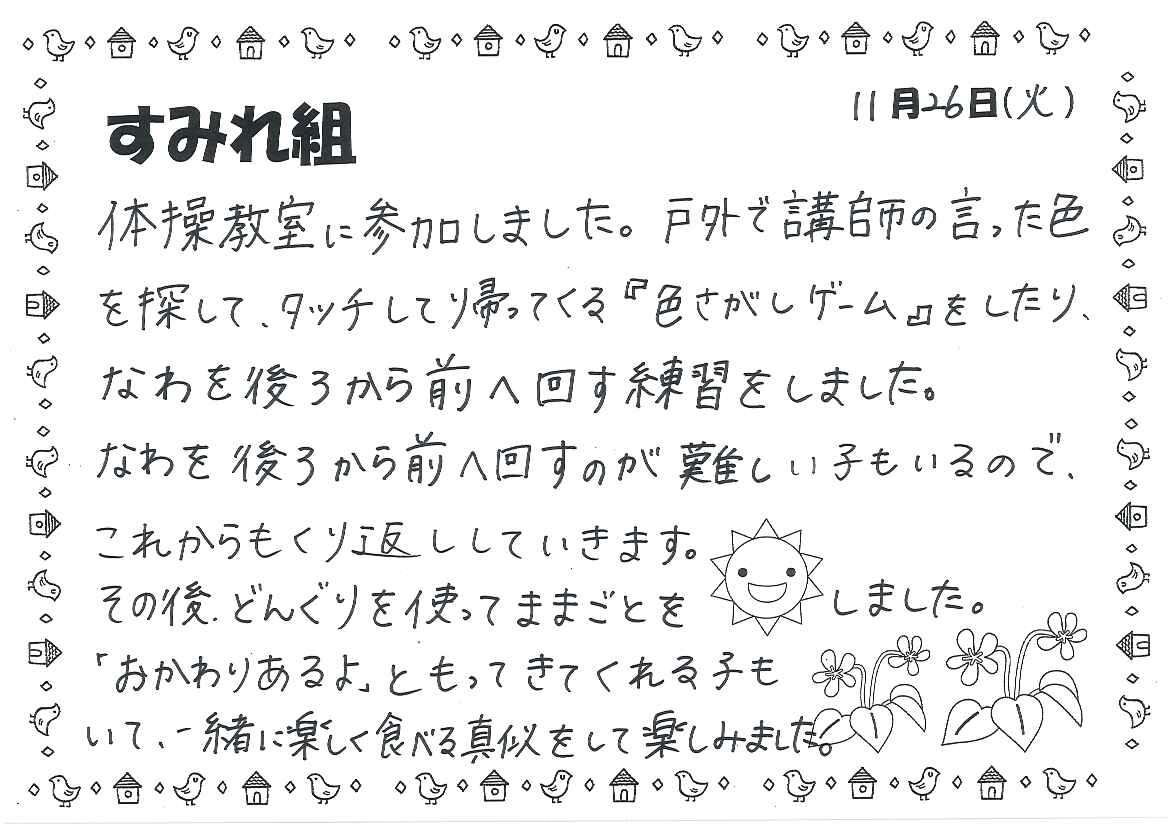 すみれ組
11月26日(火)
体操教室に参加しました。戸外で講師の言った色
を探して、タッチしてり帰ってくる『色さがしゲーム』をしたり、
なわを後ろから前へ回す練習をしました。
なわを後ろから前へ回すのが難しい子もいるので、
これからもくり返ししていきます。
その後、どんぐりを使ってままごとを しました。
「おかわりあるよ」ともってきてくれる子も
いて、一緒に楽しく食べる真似をして楽しみました。